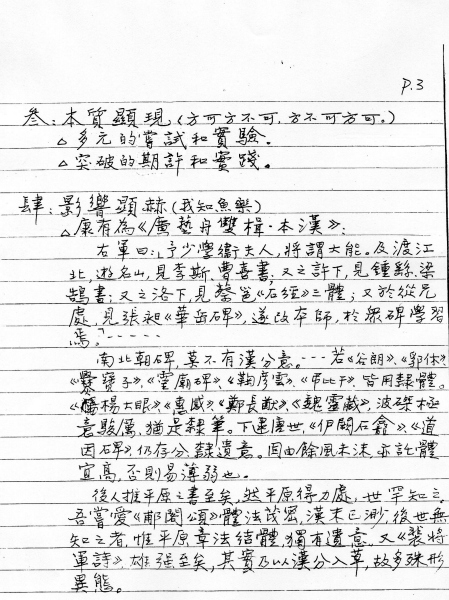 P.3
叁:本質顯現(方可方不可,方不可方可。)
△多元的嘗試和實驗。
△突破的期許和實踐。
肆:影響顯赫(我知魚樂)
△康有為《廣藝舟雙楫·本漢》:
右軍曰:「予少學衛夫人,將謂大能。及渡江
北,遊名山,見李斯、曹喜書;又之許下,見鍾繇、梁
鵠書;又之洛下,見蔡邕《石經》三體;又於從兄
處,見張昶《華岳碑》,遂改本師,於衆碑學習
焉。」-----
南北朝碑,莫不有漢分意。---若《谷朗》、《郭休》、
《爨寶子》、《靈廟碑》、《鞠彥雲》、《吊比干》,皆用隸體。
《楊大眼》、《惠感》、《鄭長猷》、《魏靈藏》,波磔極
意駿厲,猶是隸筆。下逮唐世,《伊闕石龕》、《道
因碑》仍存分隸遺意。固由餘風未沫,亦託體
宜高,否則易薄弱也。
後人推平原之書至矣,然平原得力處,世罕知之。
吾嘗愛《郙閣頌》體法茂密,漢末已渺,後世無
知之者,惟平原章法結體,獨有遺意。又《裴將
軍詩》雄強至矣,其實乃以漢分入草,故多殊形
異態。